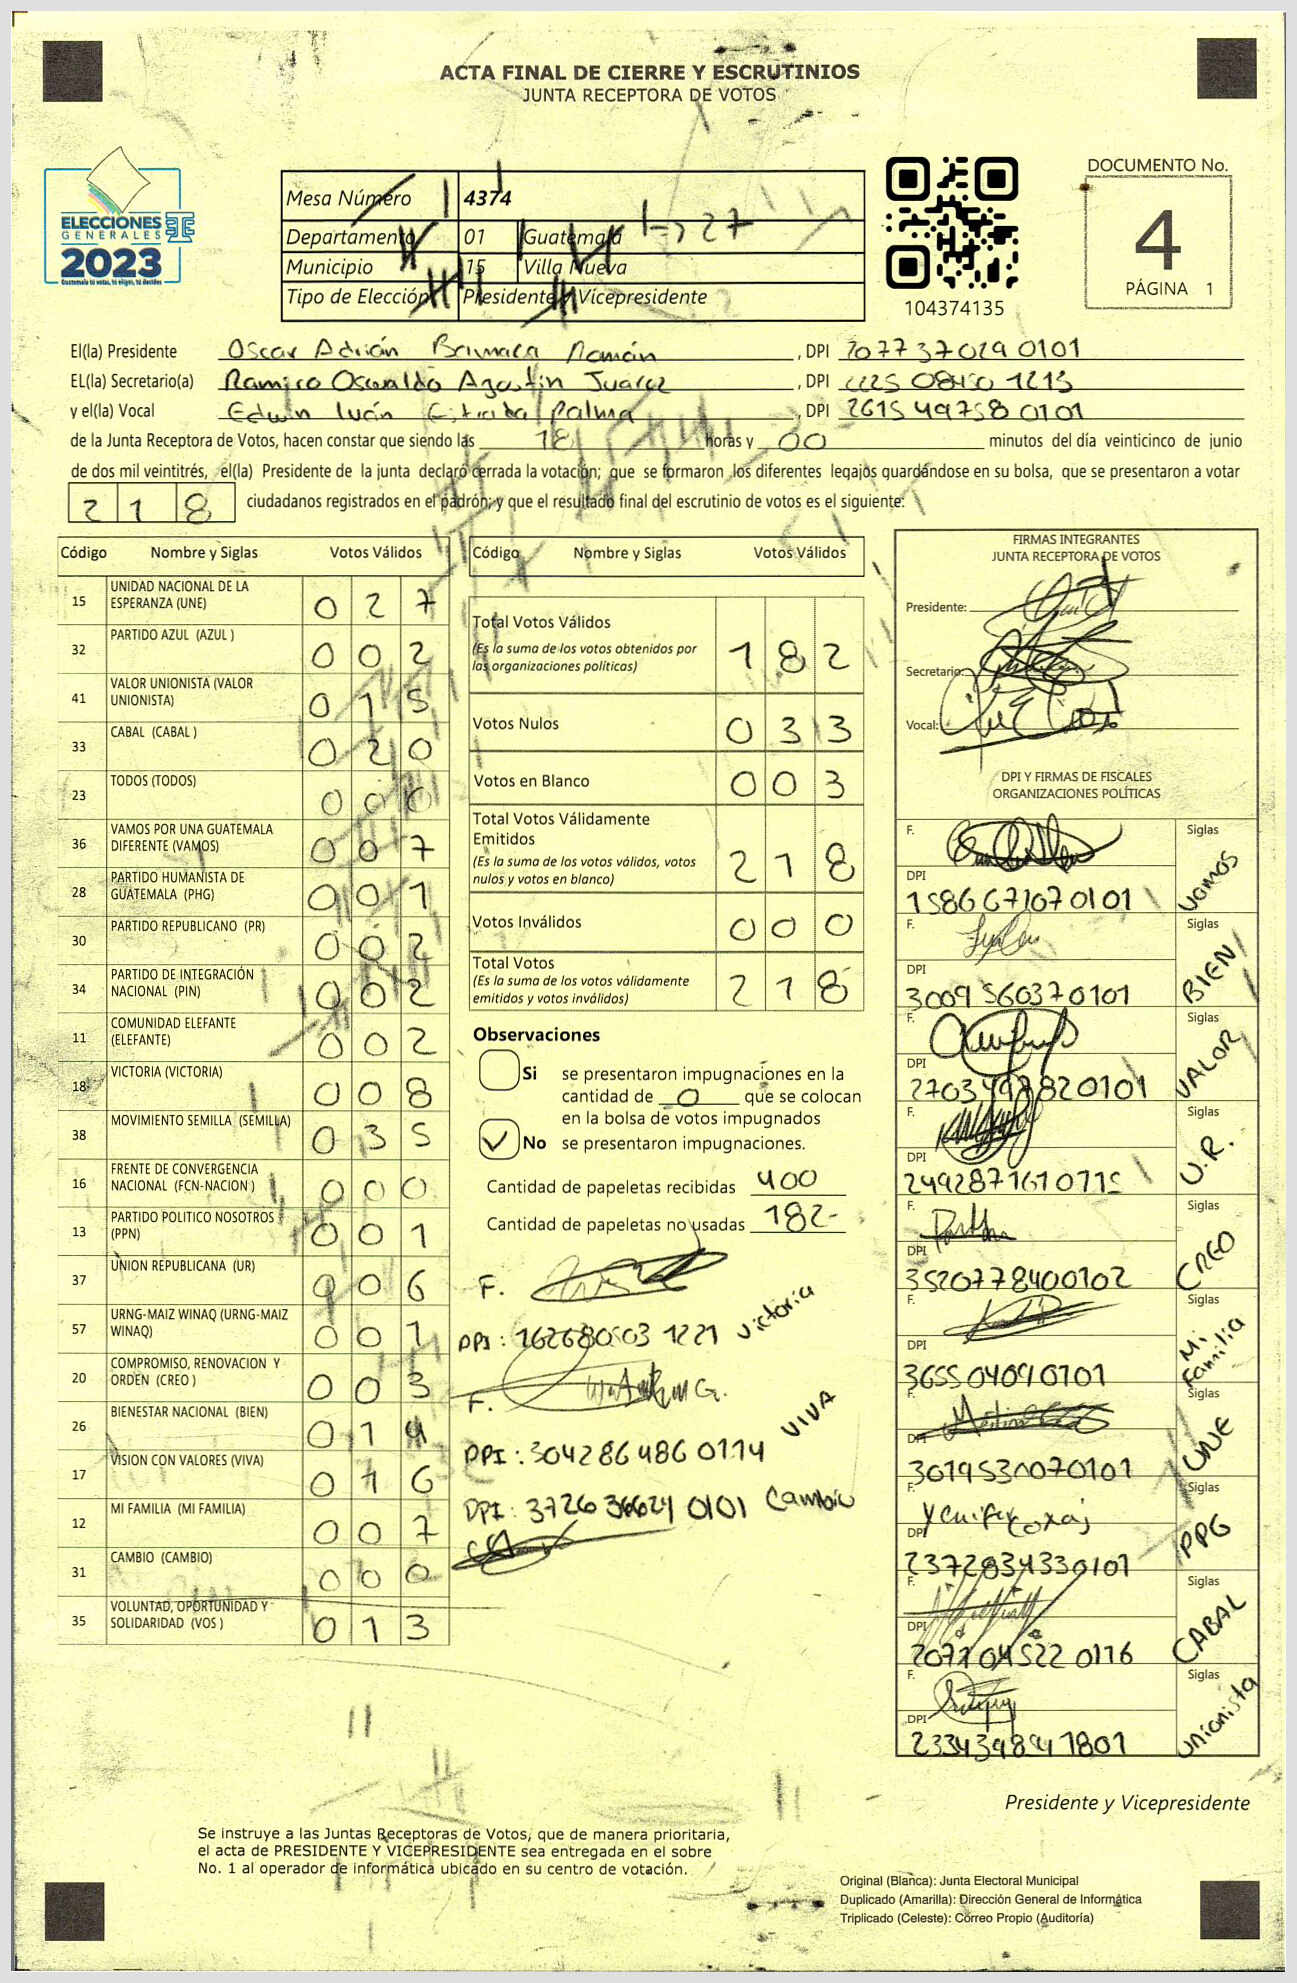 ACTA FINAL DE CIERRE Y ESCRUTINIOS
JUNTA RECEPTORA DE VOTOS
ELECCIONES
GENERALES
2023
Guatemala tú votas, tú eliges, tú decides
Mesa Número 4374
Departamento 01 Guatemala
Municipio 15 Villa Nueva
Tipo de Elección Presidente y Vicepresidente
27
104374135
DOCUMENTO No.
4
PÁGINA 1
El(la) Presidente Oscar Adrián Román, DPI 207737029 0101
EL(la) Secretario(a) Ramiro Oswaldo Agustin Juarez, DPI 1213
y el(la) Vocal Edwin Iván Estrada Palma, DPI 2615 49758 0101
de la Junta Receptora de Votos, hacen constar que siendo las 18 horas y 00 minutos del día veinticinco de junio
de dos mil veintitrés, el(la) Presidente de la junta declaró cerrada la votación; que se formaron los diferentes legajos guardándose en su bolsa, que se presentaron a votar
218 ciudadanos registrados en el padrón; y que el resultado final del escrutinio de votos es el siguiente:
Código Nombre y Siglas Votos Válidos
15 UNIDAD NACIONAL DE LA ESPERANZA (UNE) 027
32 PARTIDO AZUL (AZUL ) 002
41 VALOR UNIONISTA (VALOR UNIONISTA) 015
33 CABAL (CABAL ) 020
23 TODOS (TODOS) 000
36 VAMOS POR UNA GUATEMALA DIFERENTE (VAMOS) 007
28 PARTIDO HUMANISTA DE GUATEMALA (PHG) 001
30 PARTIDO REPUBLICANO (PR) 002
34 PARTIDO DE INTEGRACIÓN NACIONAL (PIN) 002
11 COMUNIDAD ELEFANTE (ELEFANTE) 002
18 VICTORIA (VICTORIA) 008
38 MOVIMIENTO SEMILLA (SEMILLA) 035
16 FRENTE DE CONVERGENCIA NACIONAL (FCN-NACION ) 000
13 PARTIDO POLITICO NOSOTROS (PPN) 001
37 UNION REPUBLICANA (UR) 006
57 URNG-MAIZ WINAQ (URNG-MAIZ WINAQ) 001
20 COMPROMISO, RENOVACION Y ORDEN (CREO ) 003
26 BIENESTAR NACIONAL (BIEN) 014
17 VISION CON VALORES (VIVA) 016
12 MI FAMILIA (MI FAMILIA) 007
31 CAMBIO (CAMBIO) 000
35 VOLUNTAD, OPORTUNIDAD Y SOLIDARIDAD (VOS ) 013
Código Nombre y Siglas Votos Válidos
Total Votos Válidos 182
(Es la suma de los votos obtenidos por las organizaciones políticas)
Votos Nulos 033
Votos en Blanco 003
Total Votos Válidamente Emitidos 218
(Es la suma de los votos válidos, votos nulos y votos en blanco)
Votos Inválidos 000
Total Votos 218
(Es la suma de los votos válidamente emitidos y votos inválidos)
Observaciones
Si se presentaron impugnaciones en la
cantidad de 0 que se colocan
en la bolsa de votos impugnados
No se presentaron impugnaciones.
Cantidad de papeletas recibidas 400
Cantidad de papeletas no usadas 182
F.
DPI: 162680503 1221 Victoria
F.
DPI: 304286486 0114 VIVA
DPI: 0101 Cambio
FIRMAS INTEGRANTES
JUNTA RECEPTORA DE VOTOS
Presidente:
Secretario:
Vocal:
DPI Y FIRMAS DE FISCALES
ORGANIZACIONES POLÍTICAS
F. Siglas
DPI 1586671070101 Vamos
F. Siglas
DPI 3009560370101 BIEN
F. Siglas
DPI 2703498820101 VALOR
F. Siglas
DPI 2492871610715 U.R.
F. Siglas
DPI 3520778400102 CREO
F. Siglas
DPI 3655040900101 Mi Familia
F. Siglas
DPI 3019530070101 UNE
F. Siglas
DPI 2372834330101 PPG
F. Siglas
DPI 2071045220116 CABAL
F. Siglas
DPI 2334398941801 Unionista
Presidente y Vicepresidente
Se instruye a las Juntas Receptoras de Votos, que de manera prioritaria,
el acta de PRESIDENTE Y VICEPRESIDENTE sea entregada en el sobre
No. 1 al operador de informática ubicado en su centro de votación.
Original (Blanca): Junta Electoral Municipal
Duplicado (Amarilla): Dirección General de Informática
Triplicado (Celeste): Correo Propio (Auditoría)